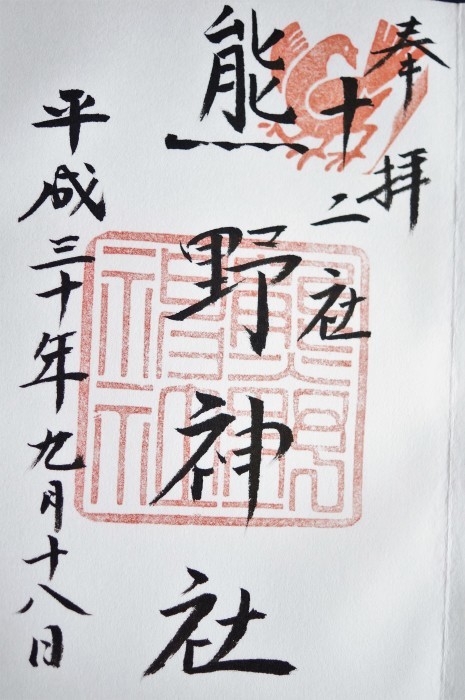 奉拝
十二社
熊野神社
平成三十年九月十八日